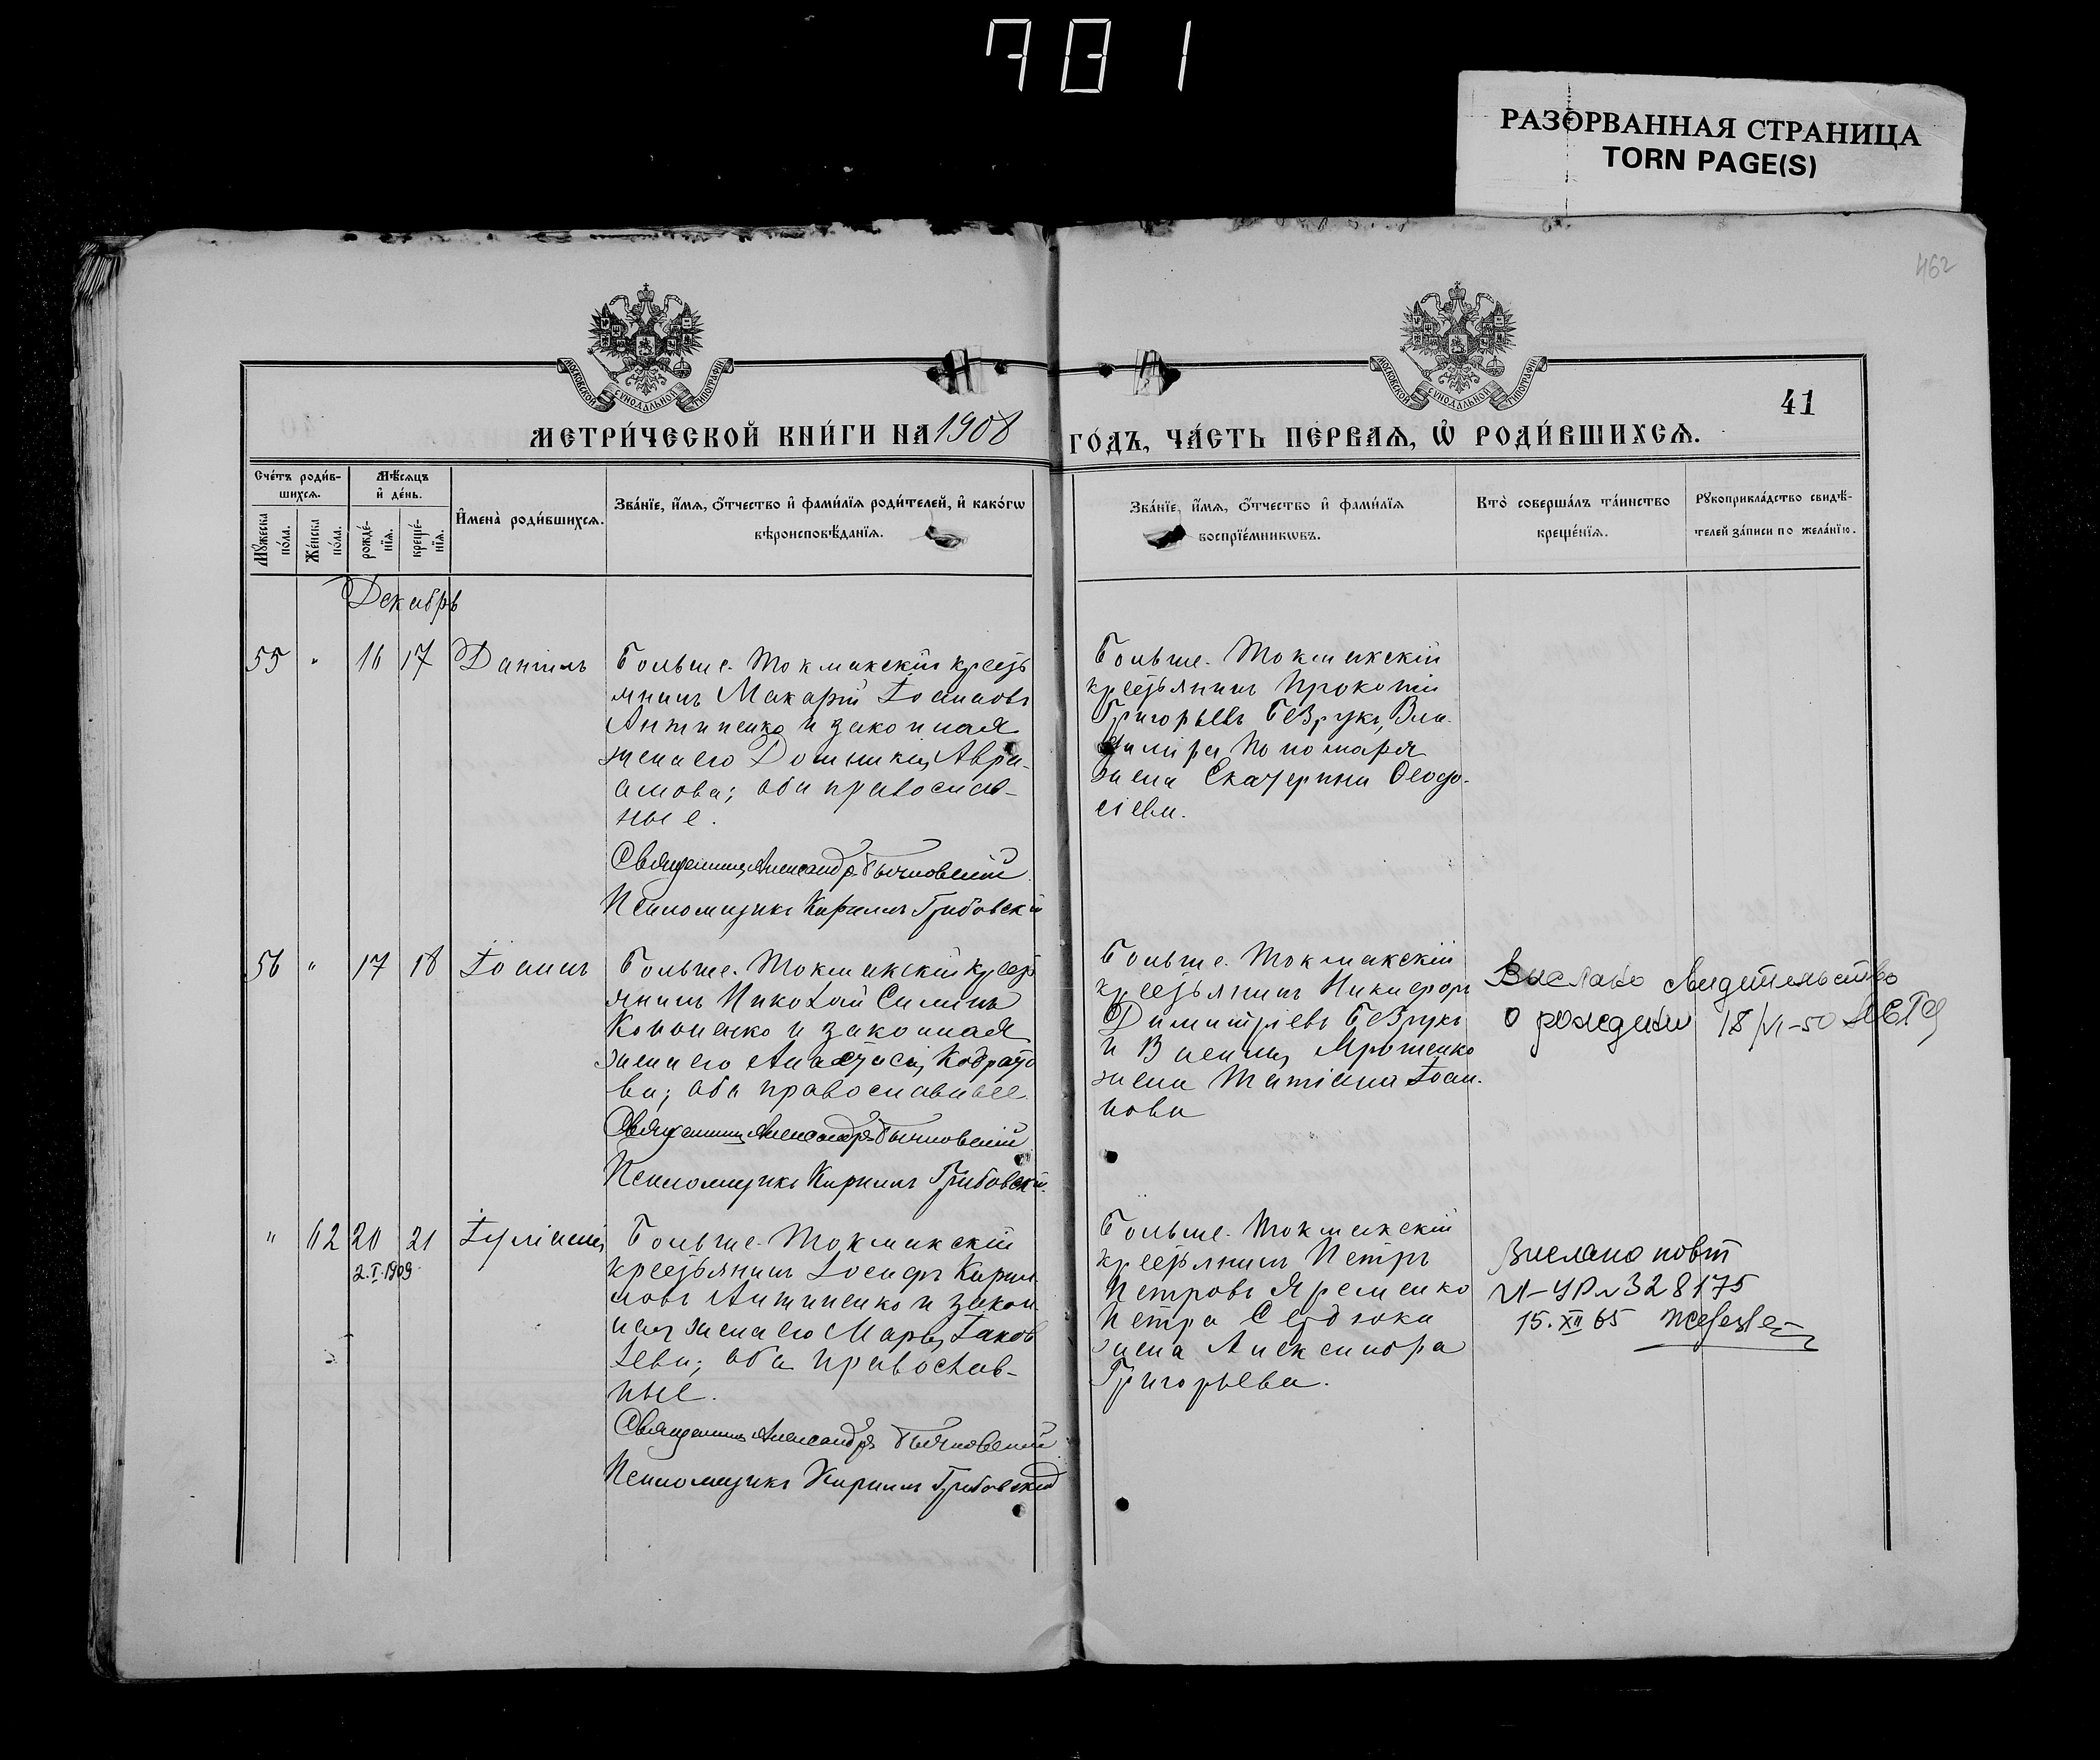 781
РАЗОРВАННАЯ СТРАНИЦА
TORN PAGE(S)
462
МОСКОВСКОЙ СѴНОДАЛЬНОЙ ТИПОГРАФІИ
МОСКОВСКОЙ СѴНОДАЛЬНОЙ ТИПОГРАФІИ
41
МЕТРИ́ЧЕСКОЙ КНИ́ГИ НА 1908 ГО́ДЪ, ЧА́СТЬ ПЕ́РВАѦ, Ѡ҆ РОДИ́ВШИХСѦ.
Сче́тъ роди́в-
шихсѧ.
Мꙋ́жеска по́ла.
Же́нска по́ла.
Мѣ́сѧцъ
и҆ де́нь.
рожде́-нїѧ.
креще́-нїѧ.
И҆мена̀ роди́вшихсѧ.
Зва́нїе, и҆́мѧ, ѻ҆́тчество и҆ фами́лїѧ роди́телей, и҆ како́гѡ
вѣроисповѣ́данїѧ.
Зва́нїе, и҆́мѧ, ѻ҆́тчество и҆ фами́лїѧ
воспрїе́мникѡвъ.
Кто̀ соверша́лъ та́инство
креще́нїѧ.
Рꙋкоприкла́дство свидѣ́-
телей за́писи по жела́нїю.
Декабрь
55 " 16 17 Даніилъ
Больше-Токмакскій кресть
янинъ Макарій Іоанновъ
Антипенко и законная
жена его Домникія Авра-
амова; оба православ-
ные.
Священникъ Александръ
Псаломщикъ Кириллъ Грибовскій
Больше-Токмакскій
крестьянинъ Прокопій
Григорьевъ Безрукъ, Вла-
диміра Пономаря
жена Екатерина Ѳеодо-
сіева.
56 " 17 18 Іоаннъ
Больше-Токмакскій крест
янинъ Николай Силинъ
Кононенко и законная
жена его Анастасія Кодрато
ва; оба православные
Священникъ Александръ
Псаломщикъ Кириллъ Грибовскій
Больше-Токмакскій
крестьянинъ Никифоръ
Димитріевъ Безрукъ
и Ярошенко
жена Татіана Іоан-
нова
Выслано свидетельство
о рождении 18/VI-50
" 62 20 21 Іуліанія
2.I.1909
Больше-Токмакскій
крестьянинъ Іосифъ Кирил
ловъ Антипенко и закон
ная жена его Марія Іаков
лева; оба православ-
ные.
Священникъ Александръ
Псаломщикъ Кириллъ Грибовскій
Больше-Токмакскій
крестьянинъ Петръ
Петровъ Яременко
Петра Сердюка
жена Александра
Григорьева.
Вислано повт
328175
15.XII 65